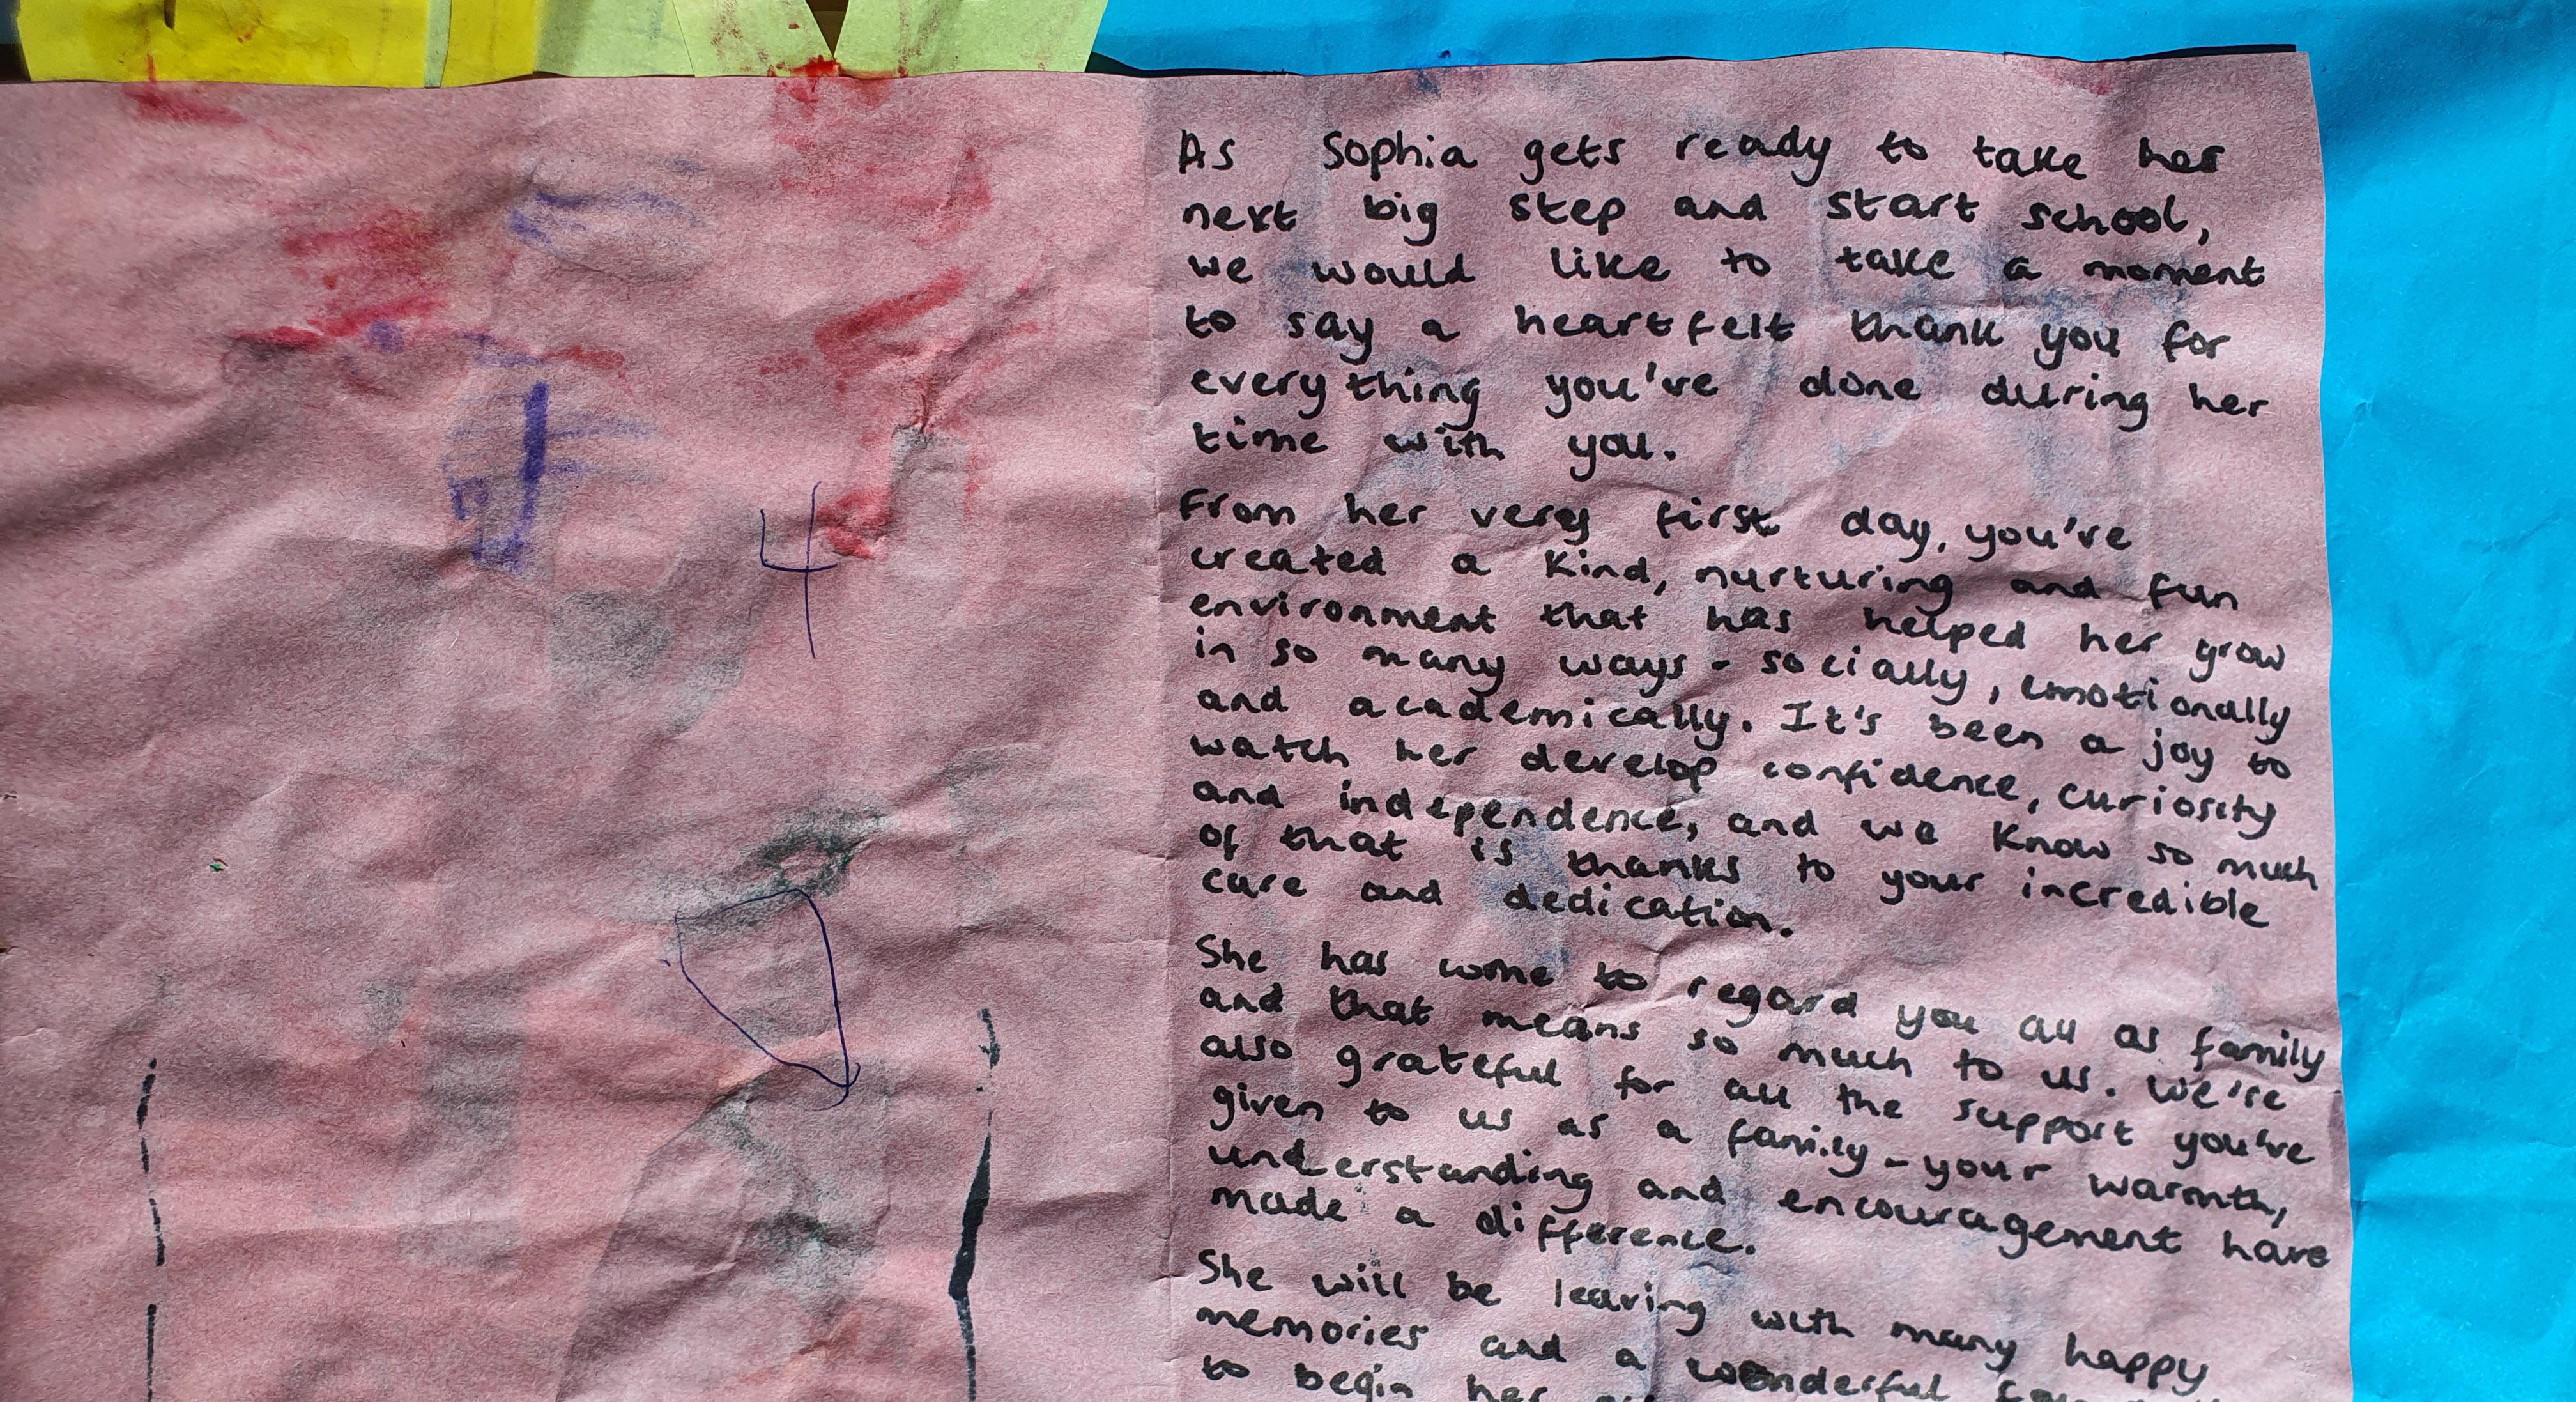 As Sophia gets ready to take her
next big step and start school,
we would like to take a moment
to say a heartfelt thank you for
everything you've done during her
time with you.
From her very first day, you've
created a kind, nurturing and fun
environment that has helped her grow
in so many ways - socially, emotionally
and academically. It's been a joy to
watch her develop confidence, curiosity
and independence, and we know so much
of that is thanks to your incredible
care and dedication.
She has come to regard you all as family
and that means so much to us. We're
also grateful for all the support you've
given to us as a family - your warmth,
understanding and encouragement have
made a difference.
She will be leaving with many happy
memories and a wonderful
to begin her
4